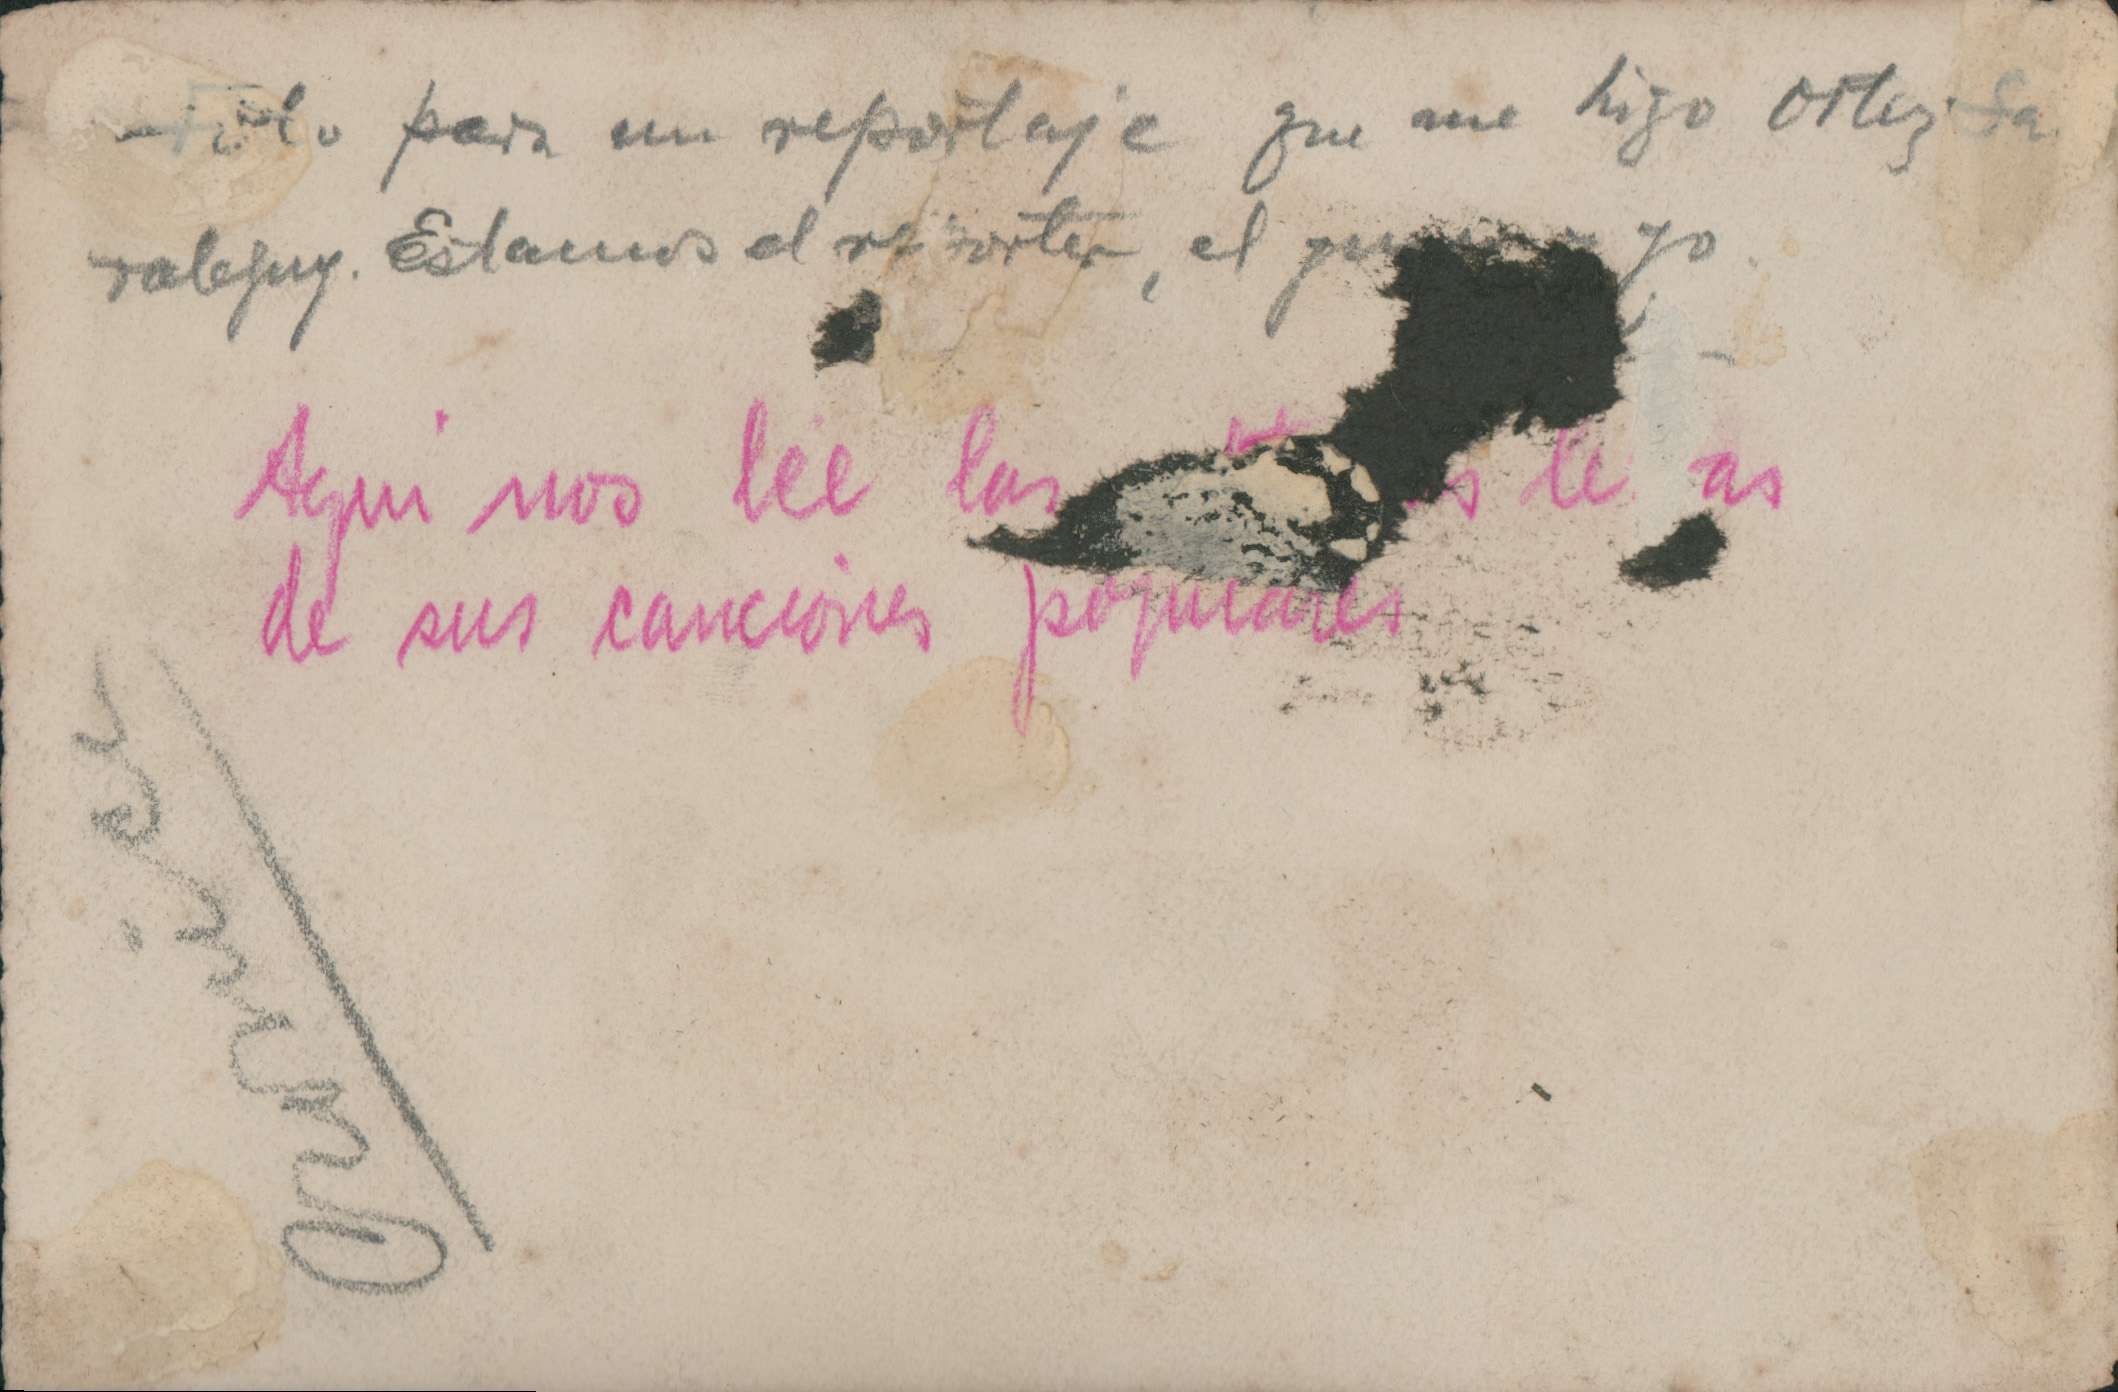 para un reportaje que me hizo Ortiz Sa
raleguy. Estamos el reporter, el yo.
Aqui nos lée las
de sus canciones populares